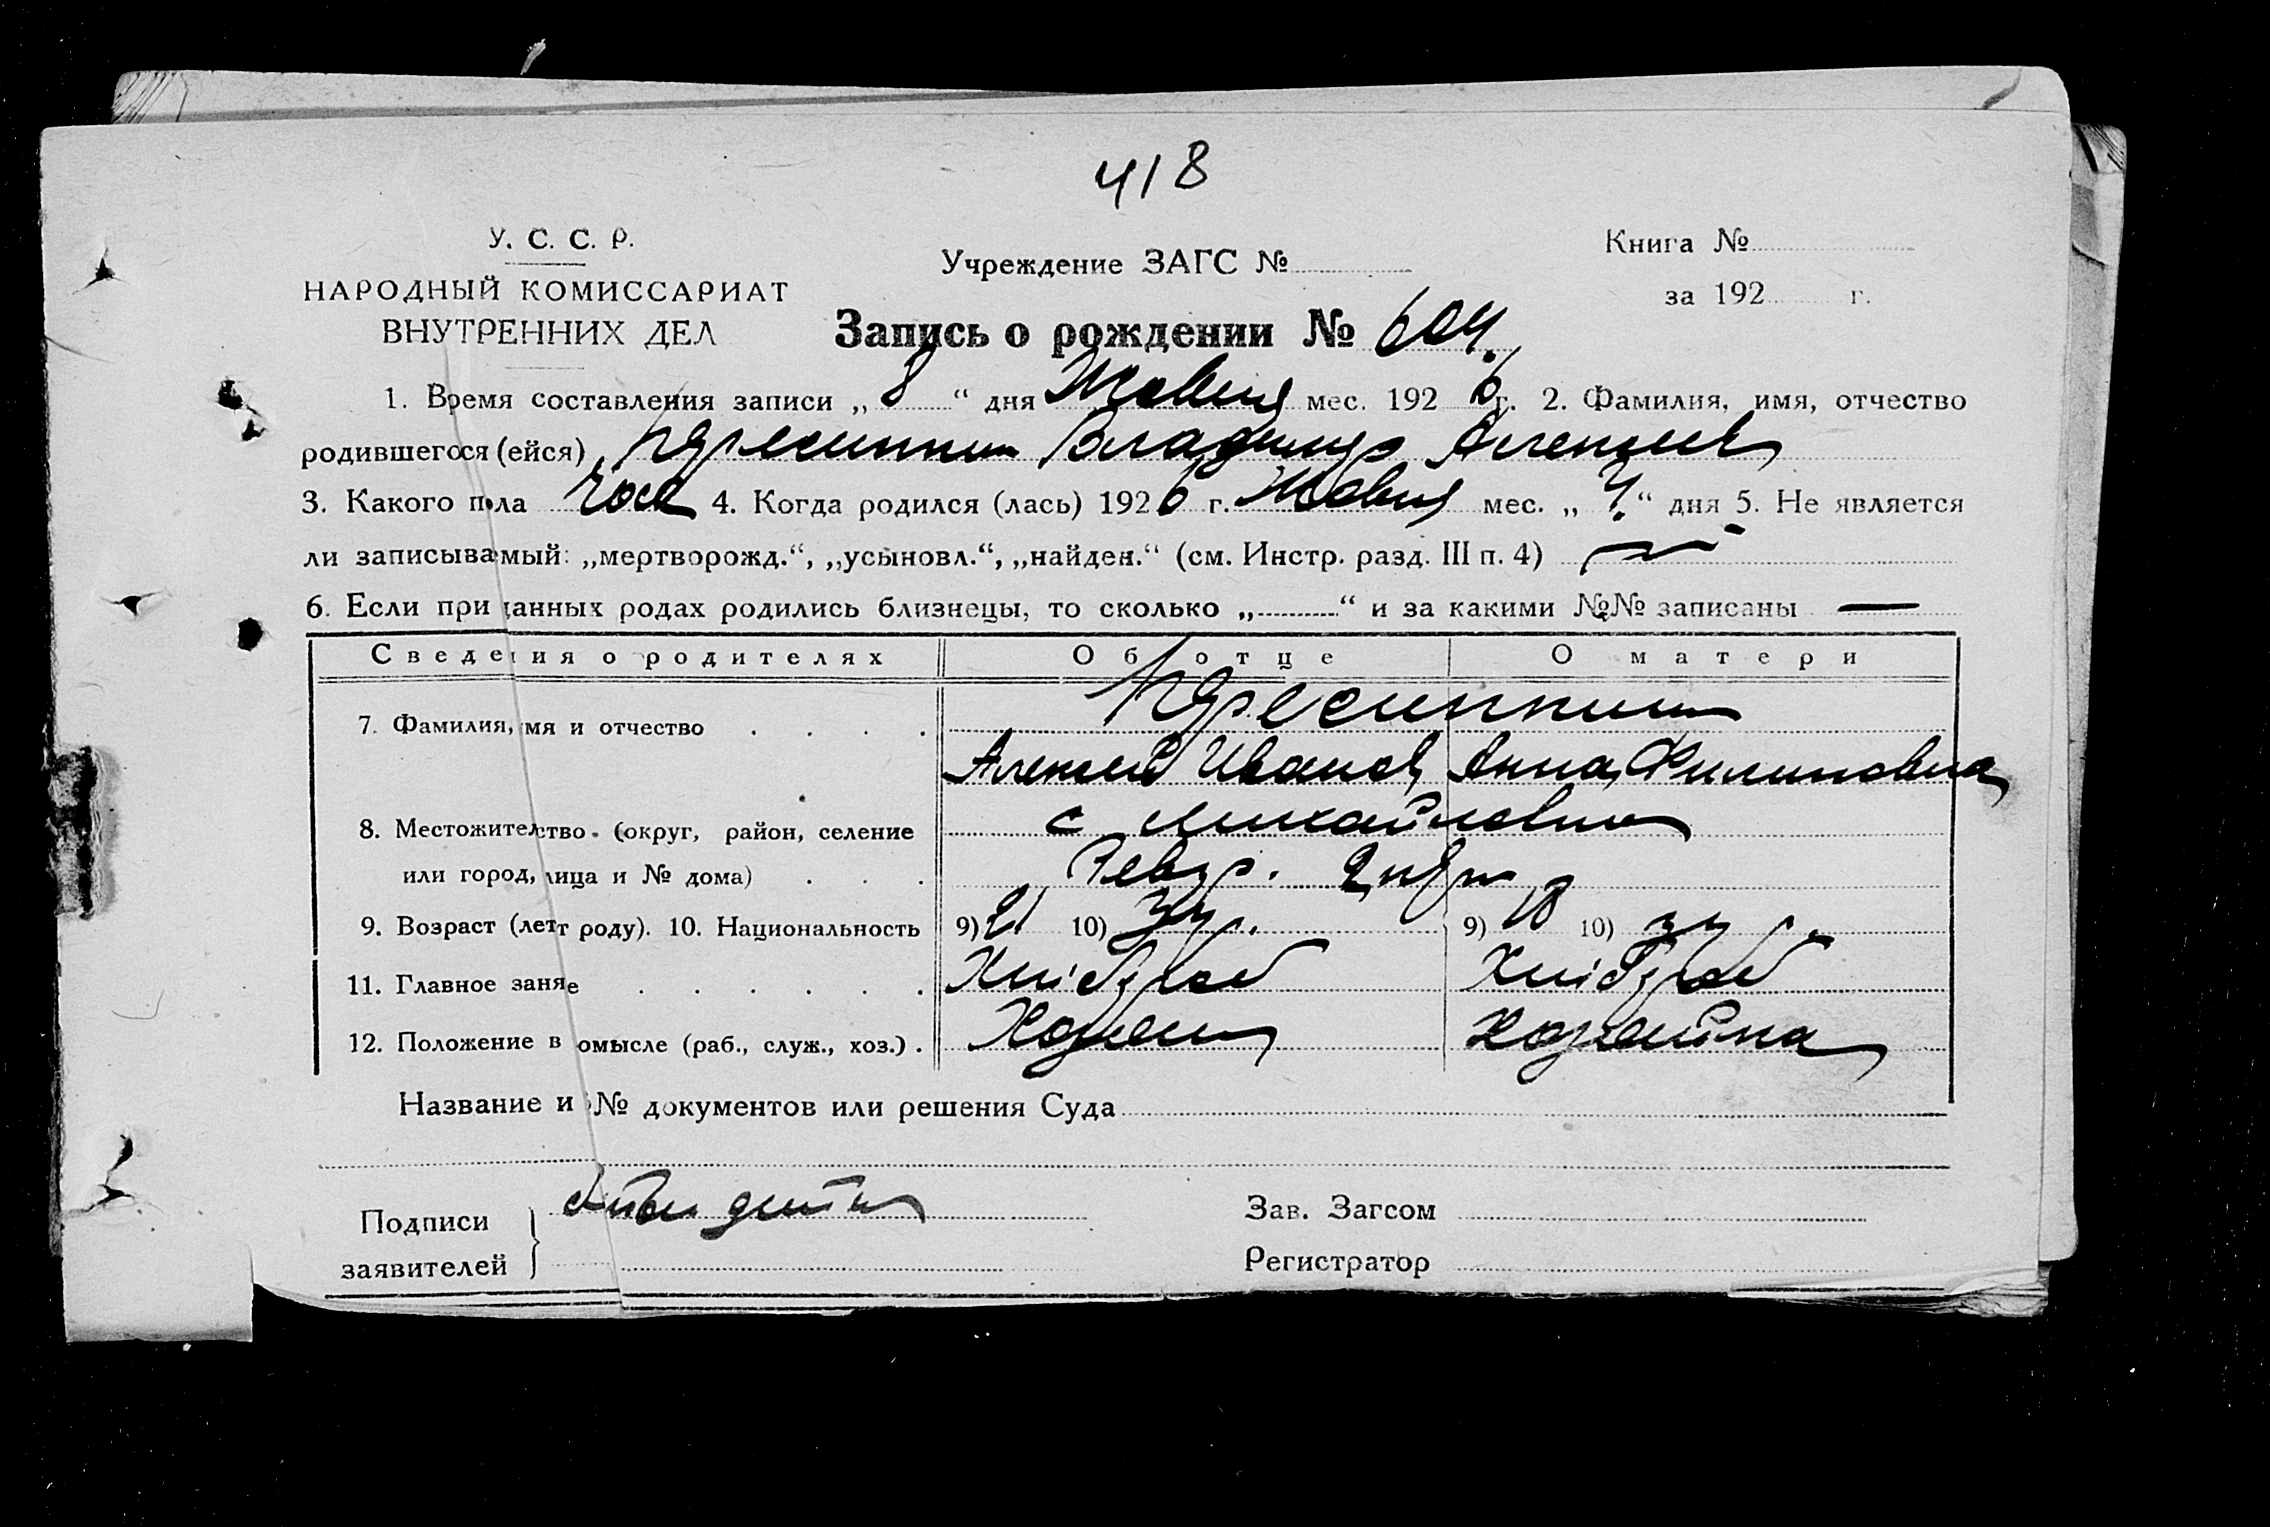 418
У. С. С. Р.
НАРОДНЫЙ КОМИССАРИАТ
ВНУТРЕННИХ ДЕЛ
Учреждение ЗАГС №
Книга №
за 192 г.
Запись о рождении № 604.
1. Время составления записи „ 8 “ дня Жовтня мес. 192 6 г. 2. Фамилия, имя, отчество
родившегося (ейся) Владимир Алексеев
3. Какого пола чол 4. Когда родился (лась) 192 6 г. Жовтня мес. „ 4. “ дня 5. Не является
ли записыва мый: „мертворожд.“, „усыновл.“, „найден.“ (см. Инстр. разд. III п. 4) —
6. Если при данных родах родились близнецы, то сколько „ “ и за какими №№ записаны —
Сведения о родителях Об отце О матери
7. Фамилия, имя и отчество
Алексей Иванов Анна Филиповна
8. Местожительство (округ, район, селение с Михайловка
или город, лица и № дома)
9. Возраст (лет роду). 10. Национальность 9) 21 10) Ук. 9) 18 10) Ук.
11. Главное заня е Хлібороб Хлібороб
12. Положение в омысле (раб., служ., хоз.) . Хозяин Хозяйка
Название и № документов или решения Суда
Подписи
заявителей
Зав. Загсом
Регистратор